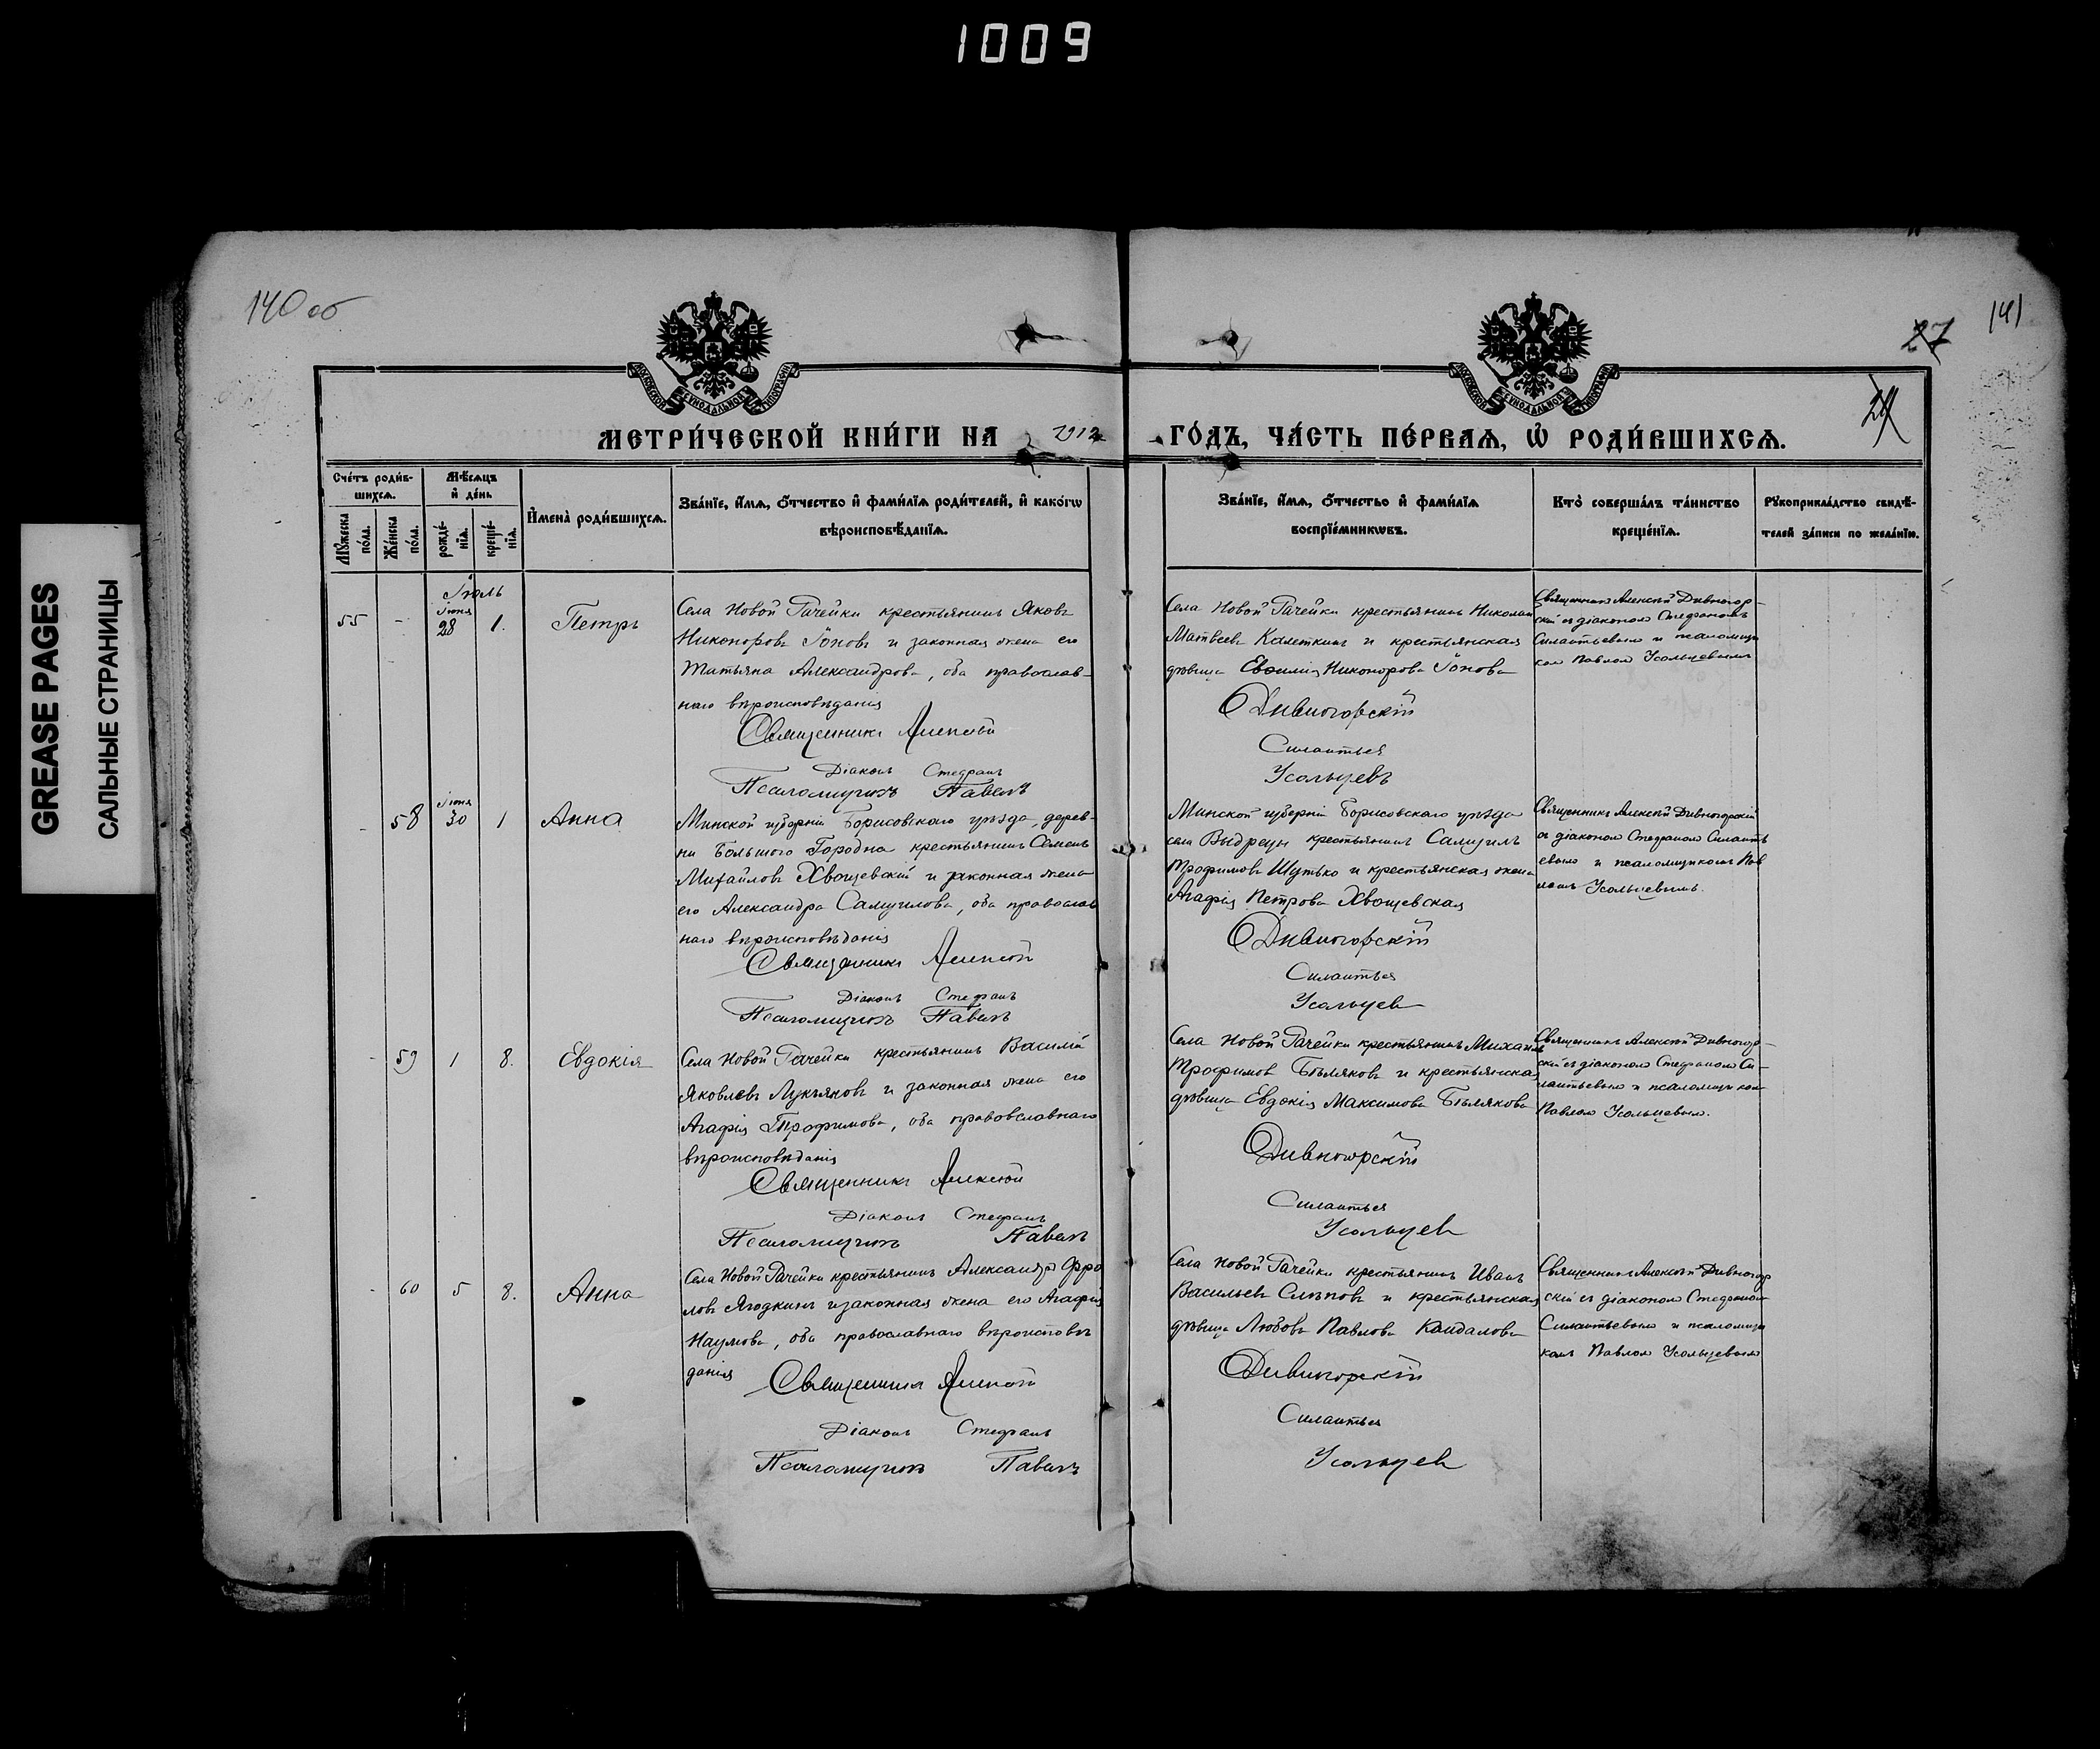 1009
GREASE PAGES
САЛЬНЫЕ СТРАНИЦЫ
140 об
141
27
МЕТРИ́ЧЕСКОЙ КНИ́ГИ НА 1912
ГО́ДЪ, ЧА́СТЬ ПЕ́РВАѦ, Ѡ҆ РОДИ́ВШИХСѦ.
Сче́тъ роди́в-
шихсѧ.
Мѣ́сѧцъ
и҆ де́нь
Мꙋ́жеска
по́ла.
Же́нска
по́ла.
рожде́-
нїѧ.
креще́-
нїѧ.
И҆мена̀ роди́вшихсѧ.
Зва́нїе, и҆́мѧ, ѻ҆́тчество и҆ фами́лїѧ роди́телей, и҆ како́гѡ
вѣроисповѣ́данїѧ.
Зва́нїе, и҆́мѧ, ѻ҆́тчестьо и҆ фами́лїѧ
воспрїе́мникѡвъ.
Кто̀ соверша́лъ та́инство
креще́нїѧ.
Рꙋкоприкла́дство свидѣ́-
телей за́писи по жела́нїю.
Іюль
55 - Іюня 28 1. Петръ
Села Новой Рачейки крестьянинъ Яковъ
Никоноровъ Іоновъ и законная жена его
Татьяна Александрова, оба православ-
наго вѣроисповѣданія
Священникъ Алексѣй
Діаконъ Стефанъ
Псаломщикъ Павелъ
Села Новой Рачейки крестьянинъ Николай
Матвеевъ Калеткинъ и крестьянская
дѣвица Евѳимія Никонорова Іонова
Дивногорскій
Силантьев
Усольцевъ
Священникъ Алексѣй Дивногор-
скій съ діакономъ Стефаномъ
Силантьевымъ и псаломщи
комъ Павломъ Усольцевымъ
- 58 Іюня 30 1 Анна
Минской губерніи Борисовскаго уѣзда, дерев-
ни Большого Городна крестьянинъ Семенъ
Михайловъ Хвощевскій и законная жена
его Александра Самуилова, оба православ
наго вѣроисповѣданія
Священникъ Алексѣй
Діаконъ Стефанъ
Псаломщикъ Павелъ
Минской губерніи Борисовскаго уѣзда
села Выдрецы крестьянинъ Самуилъ
Трофимовъ Шутько и крестьянская жена
Агафія Петрова Хвощевская
Дивногорскій
Силантьев
Усольцев
Священникъ Алексѣй Дивногорскій
съ діакономъ Стефаномъ Силанть
евымъ и псаломщикомъ Пав
ломъ Усольцевымъ.
- 59 1 8. Евдокія
Села Новой Рачейки крестьянинъ Василій
Яковлевъ Лукьяновъ и законная жена его
Агафія Трофимова, оба правовславнаго
вѣроисповѣданія
Священникъ Алексѣй
Діаконъ Стефанъ
Псаломщикъ Павелъ
Села Новой Рачейки крестьянинъ Михаилъ
Трофимов Бѣляковъ и крестьянская
дѣвица Евдокія Максимова Бѣлякова
Дивногорскій
Силантьев
Усольцев
Священникъ Алексѣй Дивногор-
скій съ діакономъ Стефаномъ Си-
лантьевымъ и псаломщиком
Павломъ Усольцевымъ.
- 60 5 8. Анна
Села Новой Рачейки крестьянинъ Александр Фро
ловъ Ягодкинъ и законная жена его Агафія
Наумова, оба православнаго вѣроисповѣ
данія
Священникъ Алексѣй
Діаконъ Стефанъ
Псаломщикъ Павелъ
Села Новой Рачейки крестьянинъ Иванъ
Васильевъ Слѣповъ и крестьянская
дѣвица Любовь Павлова Кандалова
Дивногорскій
Силантьев
Усольцев
Священникъ Алексѣй Дивногор
скій съ діакономъ Стефаномъ
Силантьевымъ и псаломщи
комъ Павломъ Усольцевымъ